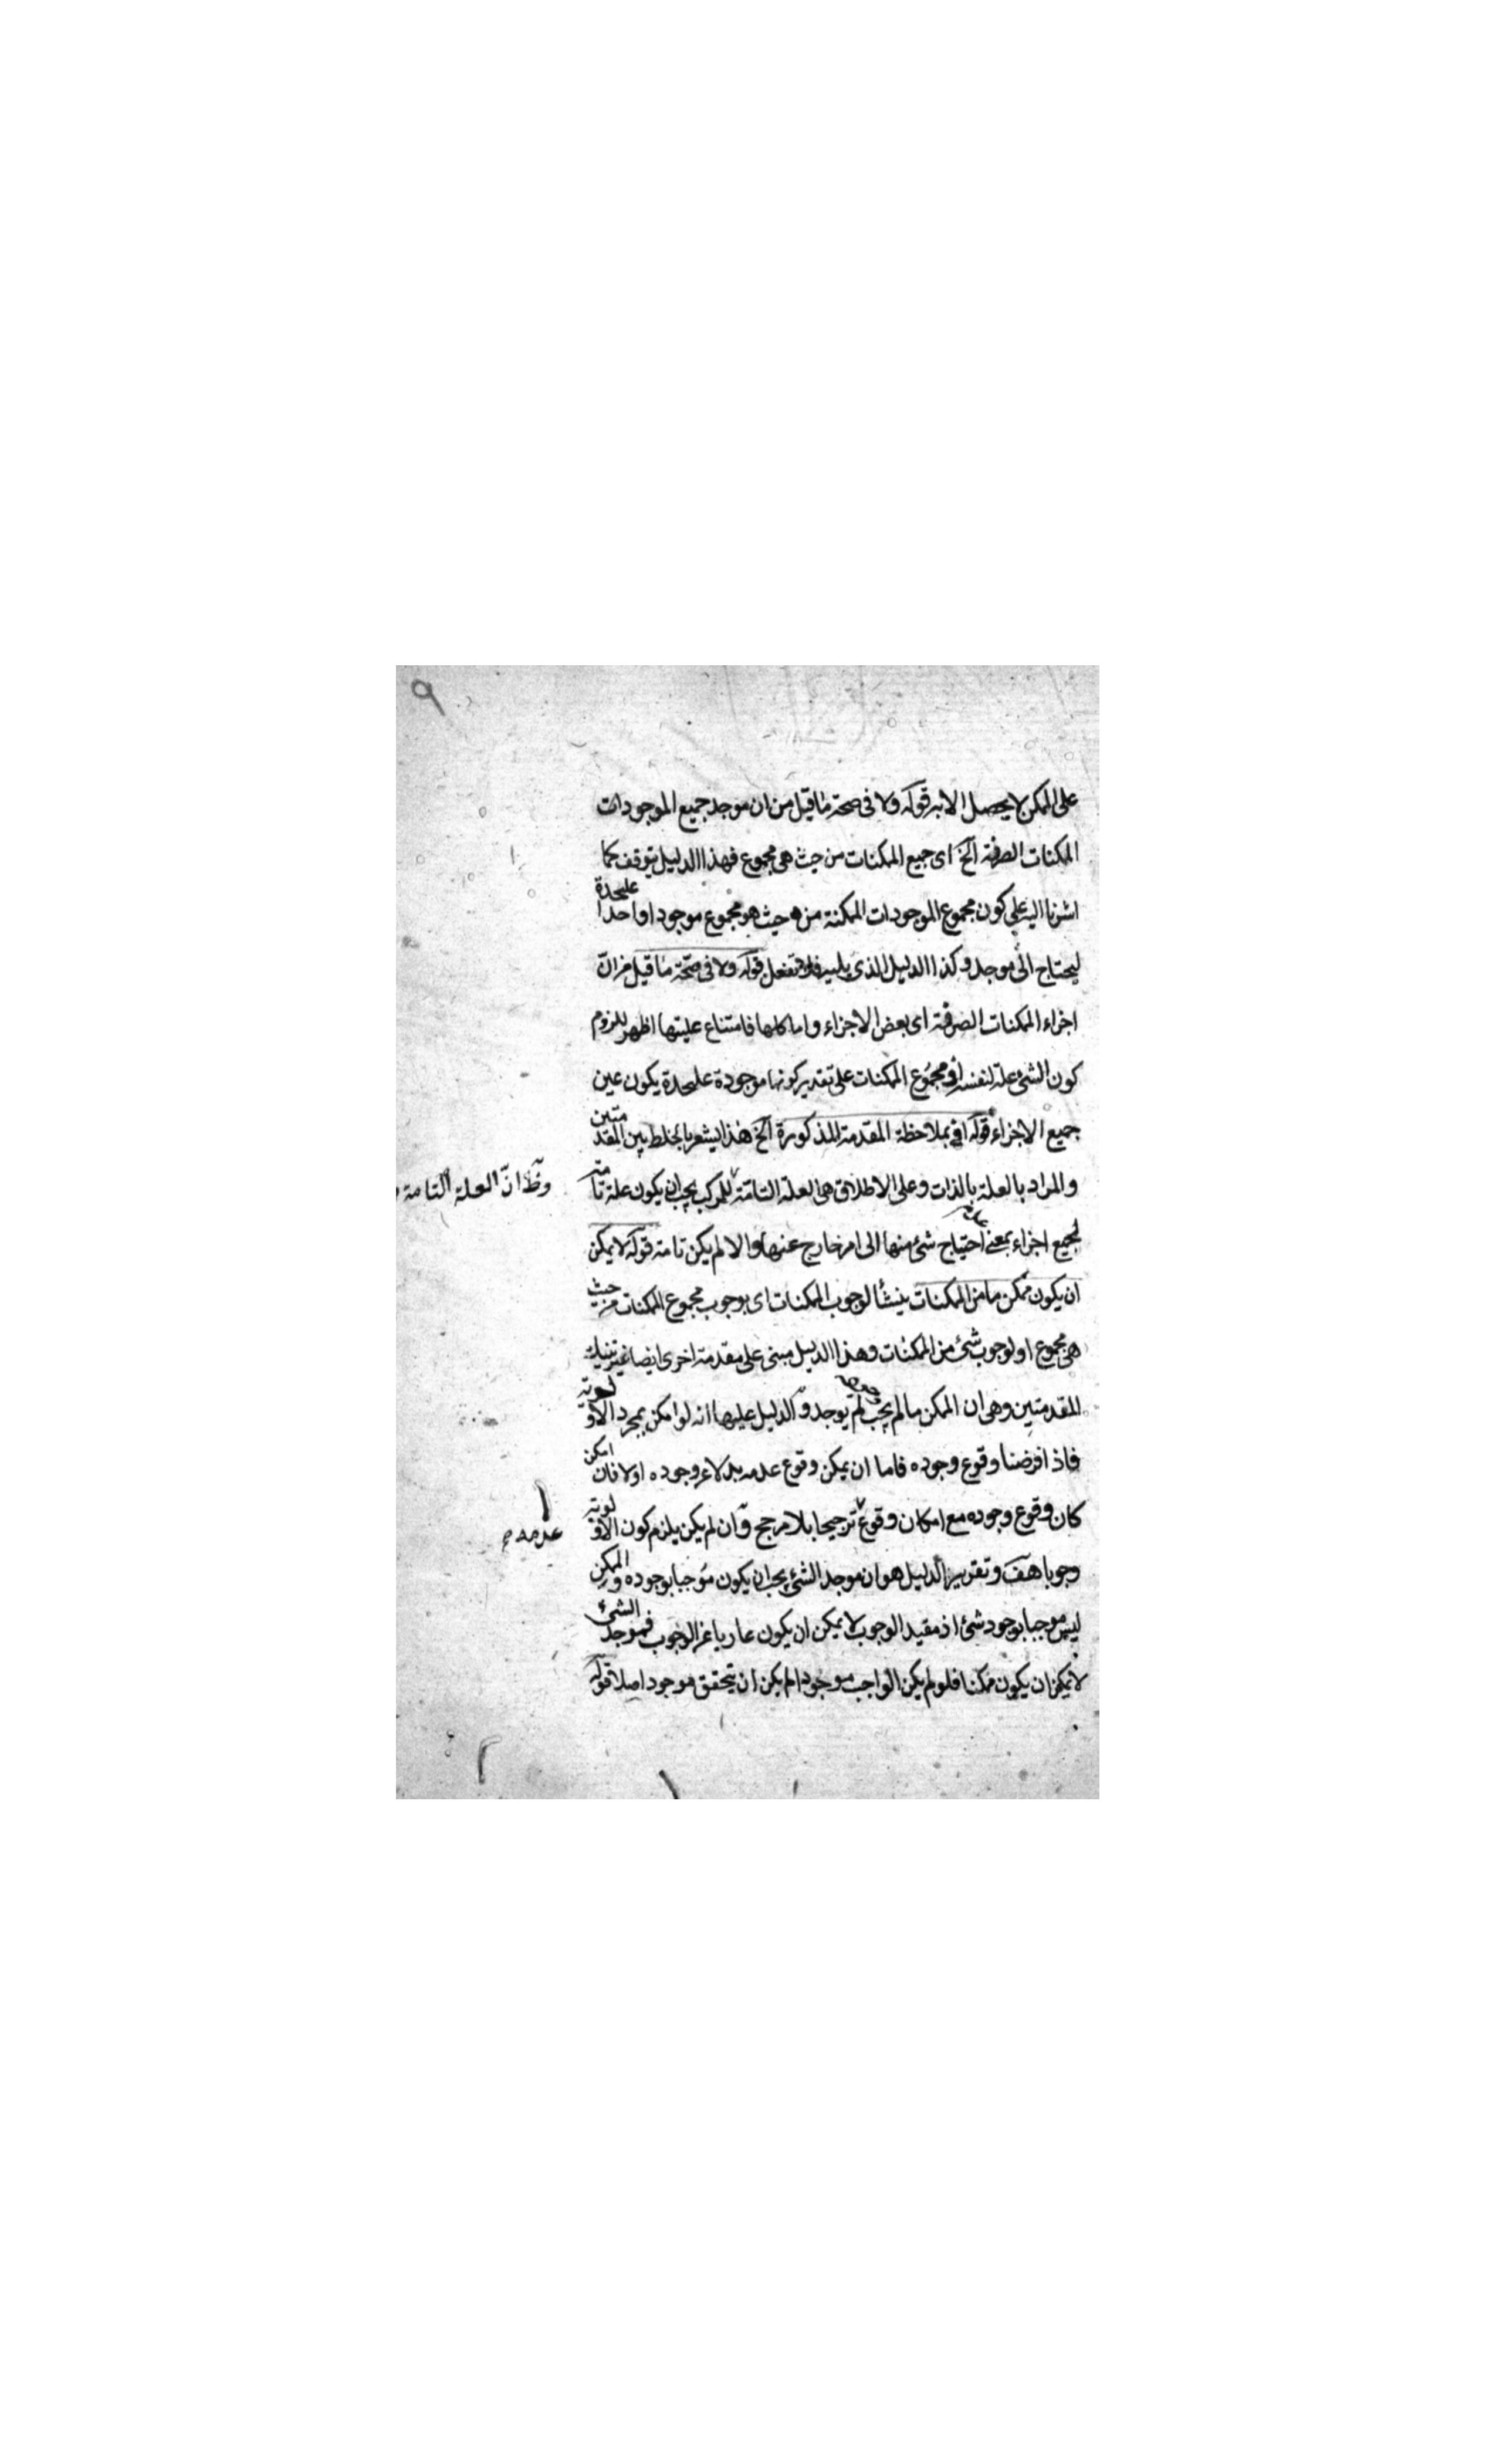 ٩
على الممكن لا يحصل الا به قوله ولا فى صحة ما قيل من ان موجد جميع الموجودات
الممكنات الصرفة آلخ اى جميع الممكنات من حيث هى مجموع فهذا الدليل يتوقف كما
اشرنا اليه على كون مجموع الموجودات الممكنة من حيث هو مجموع موجودا واحدا عليحدة
ليحتاج الى موجد وكذا الدليل الذى يليه فلا تغفل قوله ولا فى صحّة ما قيل من انّ
اجزاء الممكنات الصرفة اى بعض الاجزاء واما كلها فامتناع عليتها اظهر للزوم
كون الشئ علة لنفسه مجموع الممكنات على تقدير كونها موجودة عليحدة يكون عين
جميع الاجزاء قوله بملاحظة المقدمة المذكورة آلخ هذا يشعر بالخلط بين المقدمتين
والمراد بالعلة بالذات وعلى الاطلاق هى العلة التامّة للمركب يجب ان يكون علة تامة
وظّ انّ العلة التامة
لجميع اجزاء بمعنى احتياج شئ منها الى امر خارج عنها والا لم يكن تامة قوله لا يمكن
ان يكون ممكن ما من الممكنات ينشأ لوجوب الممكنات اى بوجوب مجموع الممكنات من حيث
هى مجموع او لوجوب شئ من الممكنات وهذا الدليل مبنى على مقدمة اخرى ايضا غير تينك
المقدمتين وهى ان الممكن ما لم يجب لم يوجد والدليل عليها انه لو امكن بمجرد الاولوية
فاذا فرضنا وقوع وجوده فاما ان يمكن وقوع عدمه بدلا عن وجوده اولا فان امكن
كان وقوع وجوده مع امكان وقوع ترجيحا بلا مرجح وان لم يكن يلزم كون الاولوية
عدمه
وجوبا هف وتقرير الدليل هو ان موجد الشئ يجب ان يكون موجبا بوجوده والممكن
ليس موجبا بوجود شئ اذ مفيد الوجوب لا يمكن ان يكون عاريا عن الوجوب فموجد الشئ
لا يمكن ان يكون ممكنا فلو لم يكن الواجب موجودا لم يكن ان يتحقق موجود اصلا قوله